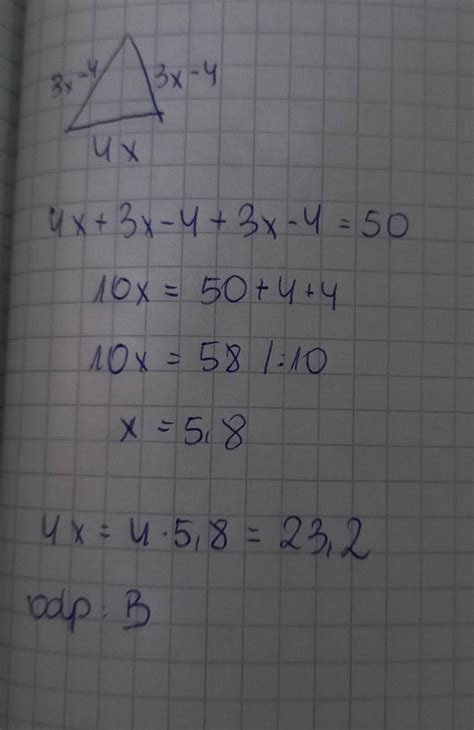 3x-4 3x-4
4x
4x+3x-4+3x-4=50
10x = 50+4+4
10x = 58 /:10
x = 5,8
4x = 4·5,8 = 23,2
odp: B